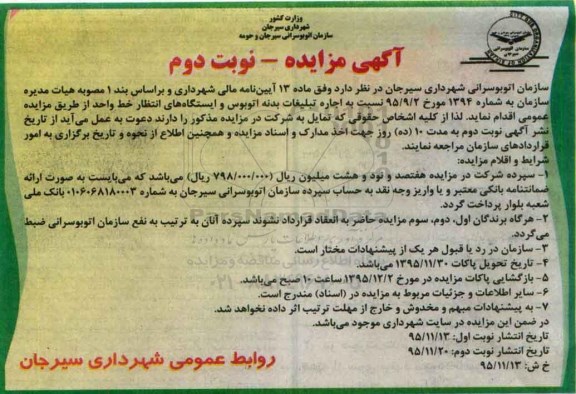 وزارت کشور
شهرداری سیرجان
سازمان اتوبوسرانی سیرجان و حومه
آگهی مزایده - نوبت دوم
سازمان اتوبوسرانی شهرداری سیرجان در نظر دارد وفق ماده ۱۳ آیین‌نامه مالی شهرداری و براساس بند ۱ مصوبه هیات مدیره
سازمان به شماره ۱۳۹۴ مورخ ۹۵/۹/۲ نسبت به اجاره تبلیغات بدنه اتوبوس و ایستگاه‌های انتظار خط واحد از طریق مزایده
عمومی اقدام نماید. لذا از کلیه اشخاص حقوقی که تمایل به شرکت در مزایده مذکور را دارند دعوت به عمل می‌آید از تاریخ
نشر آگهی نوبت دوم به مدت ۱۰ (ده) روز جهت اخذ مدارک و اسناد مزایده و همچنین اطلاع از نحوه و تاریخ برگزاری به امور
قراردادهای سازمان مراجعه نمایند.
شرایط و اقلام مزایده:
۱- سپرده شرکت در مزایده هفتصد و نود و هشت میلیون ریال (۷۹۸/۰۰۰/۰۰۰ ریال) می‌باشد که می‌بایست به صورت ارائه
ضمانتنامه بانکی معتبر و یا واریز وجه نقد به حساب سپرده سازمان اتوبوسرانی سیرجان به شماره ۰۱۰۶۰۶۸۱۸۰۰۰۳ بانک ملی
شعبه بلوار پرداخت گردد.
۲- هرگاه برندگان اول، دوم، سوم مزایده حاضر به انعقاد قرارداد نشوند سپرده آنان به ترتیب به نفع سازمان اتوبوسرانی ضبط
می‌گردد.
۳- سازمان در رد یا قبول هر یک از پیشنهادات مختار است.
۴- تاریخ تحویل پاکات ۱۳۹۵/۱۱/۳۰ می‌باشد.
۵- بازگشایی پاکات مزایده در مورخ ۱۳۹۵/۱۲/۲ ساعت ۱۰ صبح می‌باشد.
۶- سایر اطلاعات و جزئیات مربوط به مزایده در (اسناد) مندرج است.
۷- به پیشنهادات مبهم و مخدوش و خارج از مهلت ترتیب اثر داده نخواهد شد.
در ضمن این مزایده در سایت شهرداری موجود می‌باشد.
تاریخ انتشار نوبت اول: ۹۵/۱۱/۱۳
تاریخ انتشار نوبت دوم: ۹۵/۱۱/۲۰
خ ش: ۹۵/۱۱/۱۳
روابط عمومی شهرداری سیرجان